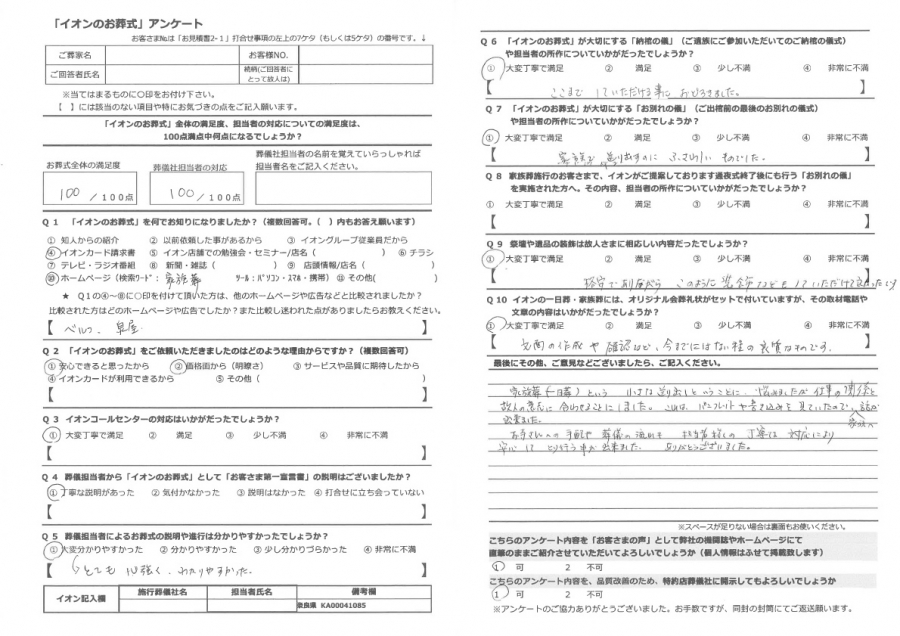 「イオンのお葬式」アンケート
お客さま№は「お見積書2-1」打合せ事項の左上の7ケタ（もしくは5ケタ）の番号です。↓
ご葬家名 お客様NO.
ご回答者氏名 続柄(ご回答者にとって故人は)
※当てはまるものに○印をお付け下さい。
【 】には該当のない項目や特にお気づきの点をご記入願います。
「イオンのお葬式」全体の満足度、担当者の対応についての満足度は、
100点満点中何点になるでしょうか？
お葬式全体の満足度 葬儀社担当者の対応 葬儀社担当者の名前を覚えていらっしゃれば
担当者名をご記入ください。
100 /100点 100 /100点
Q 1 「イオンのお葬式」を何でお知りになりましたか？（複数回答可。（ ）内もお答え願います）
① 知人からの紹介 ② 以前依頼した事があるから ③ イオングループ従業員だから
④イオンカード請求書 ⑤ イオン店舗での勉強会・セミナー/店名（ ）⑥ チラシ
⑦ テレビ・ラジオ番組 ⑧ 新聞・雑誌（ ）⑨ 店頭情報/店名（ ）
⑩ホームページ（検索ﾜｰﾄﾞ： 家族葬 ﾂｰﾙ：ﾊﾟｿｺﾝ・ｽﾏﾎ・携帯）⑪ その他( )
★ Q1の④～⑧に○印を付けて頂いた方は、他のホームページや広告などと比較されましたか？
比較された方はどのホームページや広告でしたか？また比較し迷われた点がありましたらお教えください。
【 ベルコ、 】
Q 2 「イオンのお葬式」をご依頼いただきましたのはどのような理由からですか？（複数回答可）
①安心できると思ったから ②価格面から（明瞭さ） ③ サービスや品質に期待したから
④ イオンカードが利用できるから ⑤ その他（
【 】
Q 3 イオンコールセンターの対応はいかがだったでしょうか？
① 大変丁寧で満足 ② 満足 ③ 少し不満 ④ 非常に不満
【 】
Q 4 葬儀担当者から「イオンのお葬式」として「お客さま第一宣言書」の説明はございましたか？
①丁寧な説明があった ② 気付かなかった ③ 説明はなかった ④ 打合せに立ち会っていない
【 】
Q 5 葬儀担当者によるお葬式の説明や進行は分かりやすかったでしょうか？
①大変分かりやすかった ② 分かりやすかった ③ 少し分かりづらかった ④ 非常に不満
【 とても 心強く、わかりやすかった。 】
イオン記入欄 施行葬儀社名 担当者氏名 備考欄
奈良県 KA00041085
Q 6 「イオンのお葬式」が大切にする「納棺の儀」（ご遺族にご参加いただいてのご納棺の儀式）
や担当者の所作についていかがだったでしょうか？
① 大変丁寧で満足 ② 満足 ③ 少し不満 ④ 非常に不満
【 ここまで していただける事に おどろきました。 】
Q 7 「イオンのお葬式」が大切にする「お別れの儀」（ご出棺前の最後のお別れの儀式）
や担当者の所作についていかがだったでしょうか？
① 大変丁寧で満足 ② 満足 ③ 少し不満 ④ 非常に不満
【 家族を 送り出すのに ふさわしい ものでした。 】
Q 8 家族葬施行のお客さまで、イオンがご提案しております通夜式終了後にも行う「お別れの儀」
を実施された方へ。その内容、担当者の所作についていかがだったでしょうか？
① 大変丁寧で満足 ② 満足 ③ 少し不満 ④ 非常に不満
【 】
Q 9 祭壇や遺品の装飾は故人さまに相応しい内容だったでしょうか？
① 大変丁寧で満足 ② 満足 ③ 少し不満 ④ 非常に不満
【 格安で ありながら このように
Q 10 イオンの一日葬・家族葬には、オリジナル会葬礼状がセットで付いていますが、その取材電話や
文章の内容はいかがだったでしょうか？
① 大変丁寧で満足 ② 満足 ③ 少し不満 ④ 非常に不満
【 文面の作成や 確認など、今までにはない程の 良質なものです。 】
最後にその他、ご意見などございましたら、ご記入ください。
家族葬(一日葬)という 小さな送り出しということに、悩みましたが 仕事の関係と
故人の意志に 合わせることにしました。これは、パンフレットや 見ていたので、話が
出来ました。
お寺さんへの手配や 葬儀の流れを 担当者様の 丁寧な 対応により
安心して とり行う事が出来ました。 ありがとうございました。
※スペースが足りない場合は裏面もお使いください。
こちらのアンケート内容を「お客さまの声」として弊社の機関誌やホームページにて
直筆のままご紹介させていただいてよろしいでしょうか（個人情報はふせて掲載致します）
1 可 2 不可
こちらのアンケート内容を、品質改善のため、特約店葬儀社に開示してもよろしいでしょうか
1 可 2 不可
※アンケートのご協力ありがとうございました。お手数ですが、同封の封筒にてご返送願います。